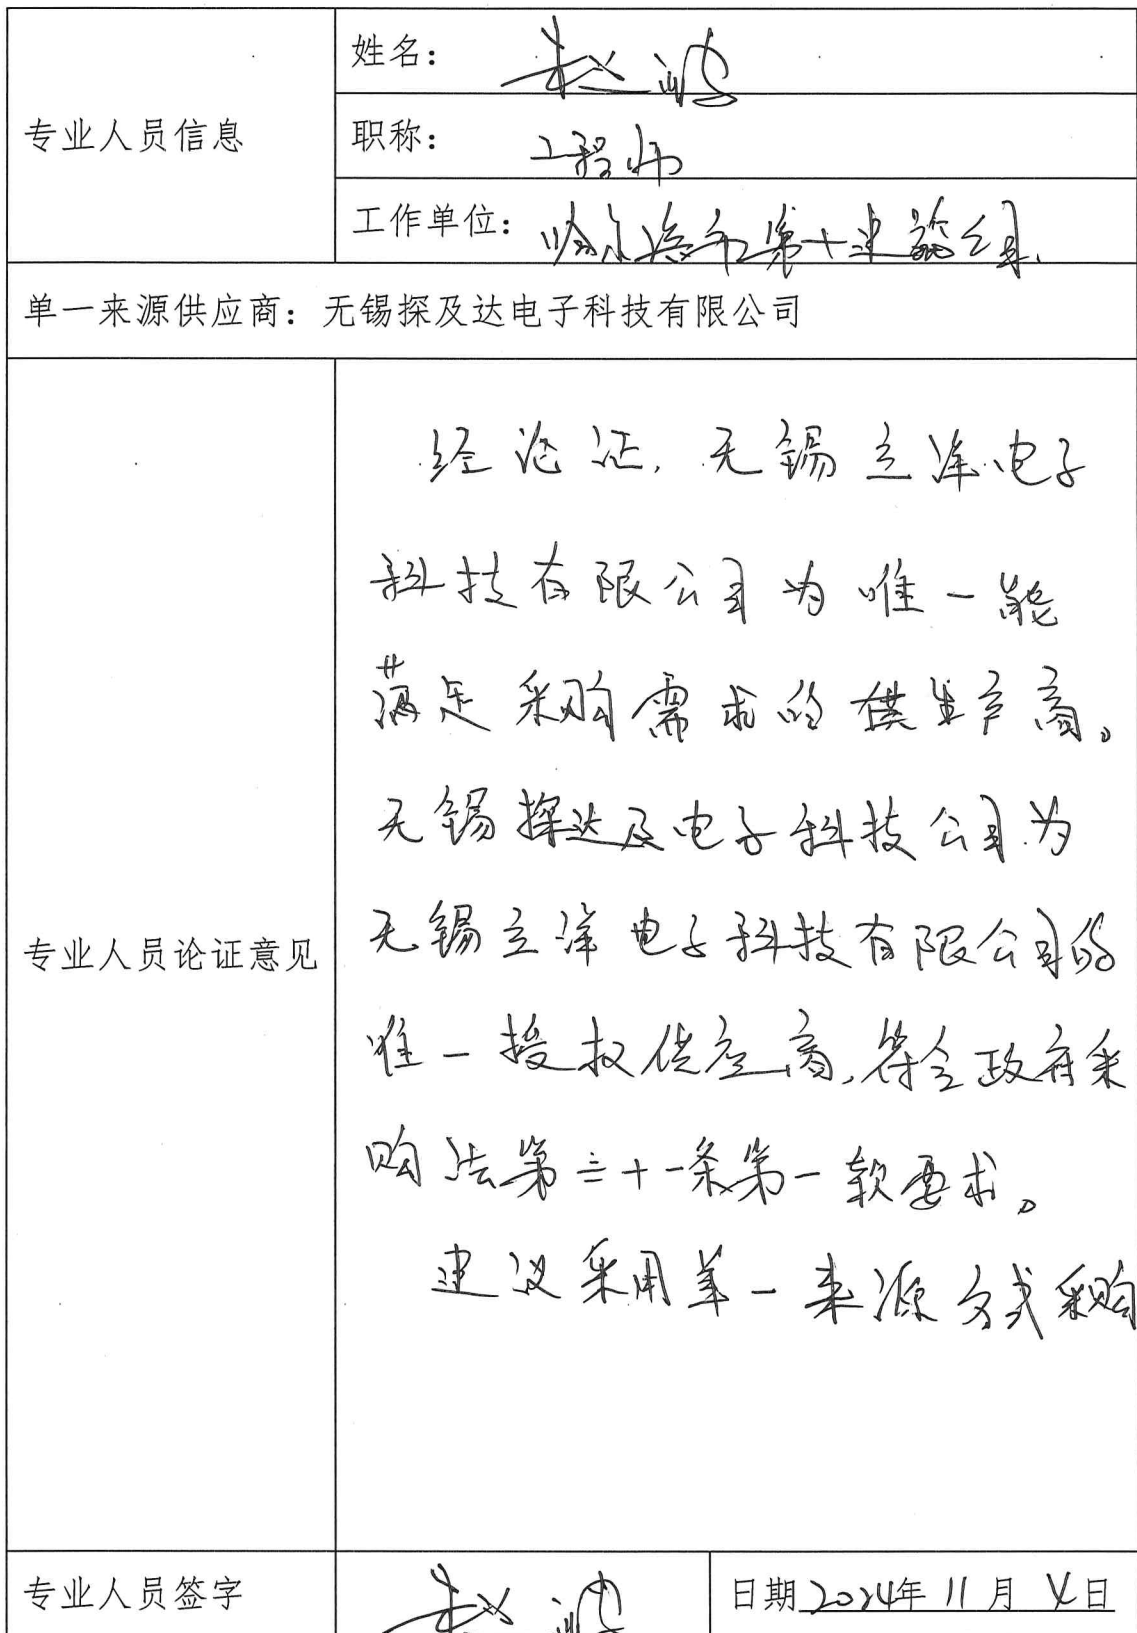 姓名：赵波
专业人员信息
职称：工程师
工作单位：哈尔滨市第十建筑公司
单一来源供应商：无锡探及达电子科技有限公司
经论证，无锡立洋电子
科技有限公司为唯一能
满足采购需求的供生产商。
无锡探达及电子科技公司为
专业人员论证意见
无锡立洋电子科技有限公司的
唯一授权供应商，符合政府采
购法第三十一条第一款要求。
建议采用单一来源方式采购
专业人员签字
赵波
日期2024年11月4日